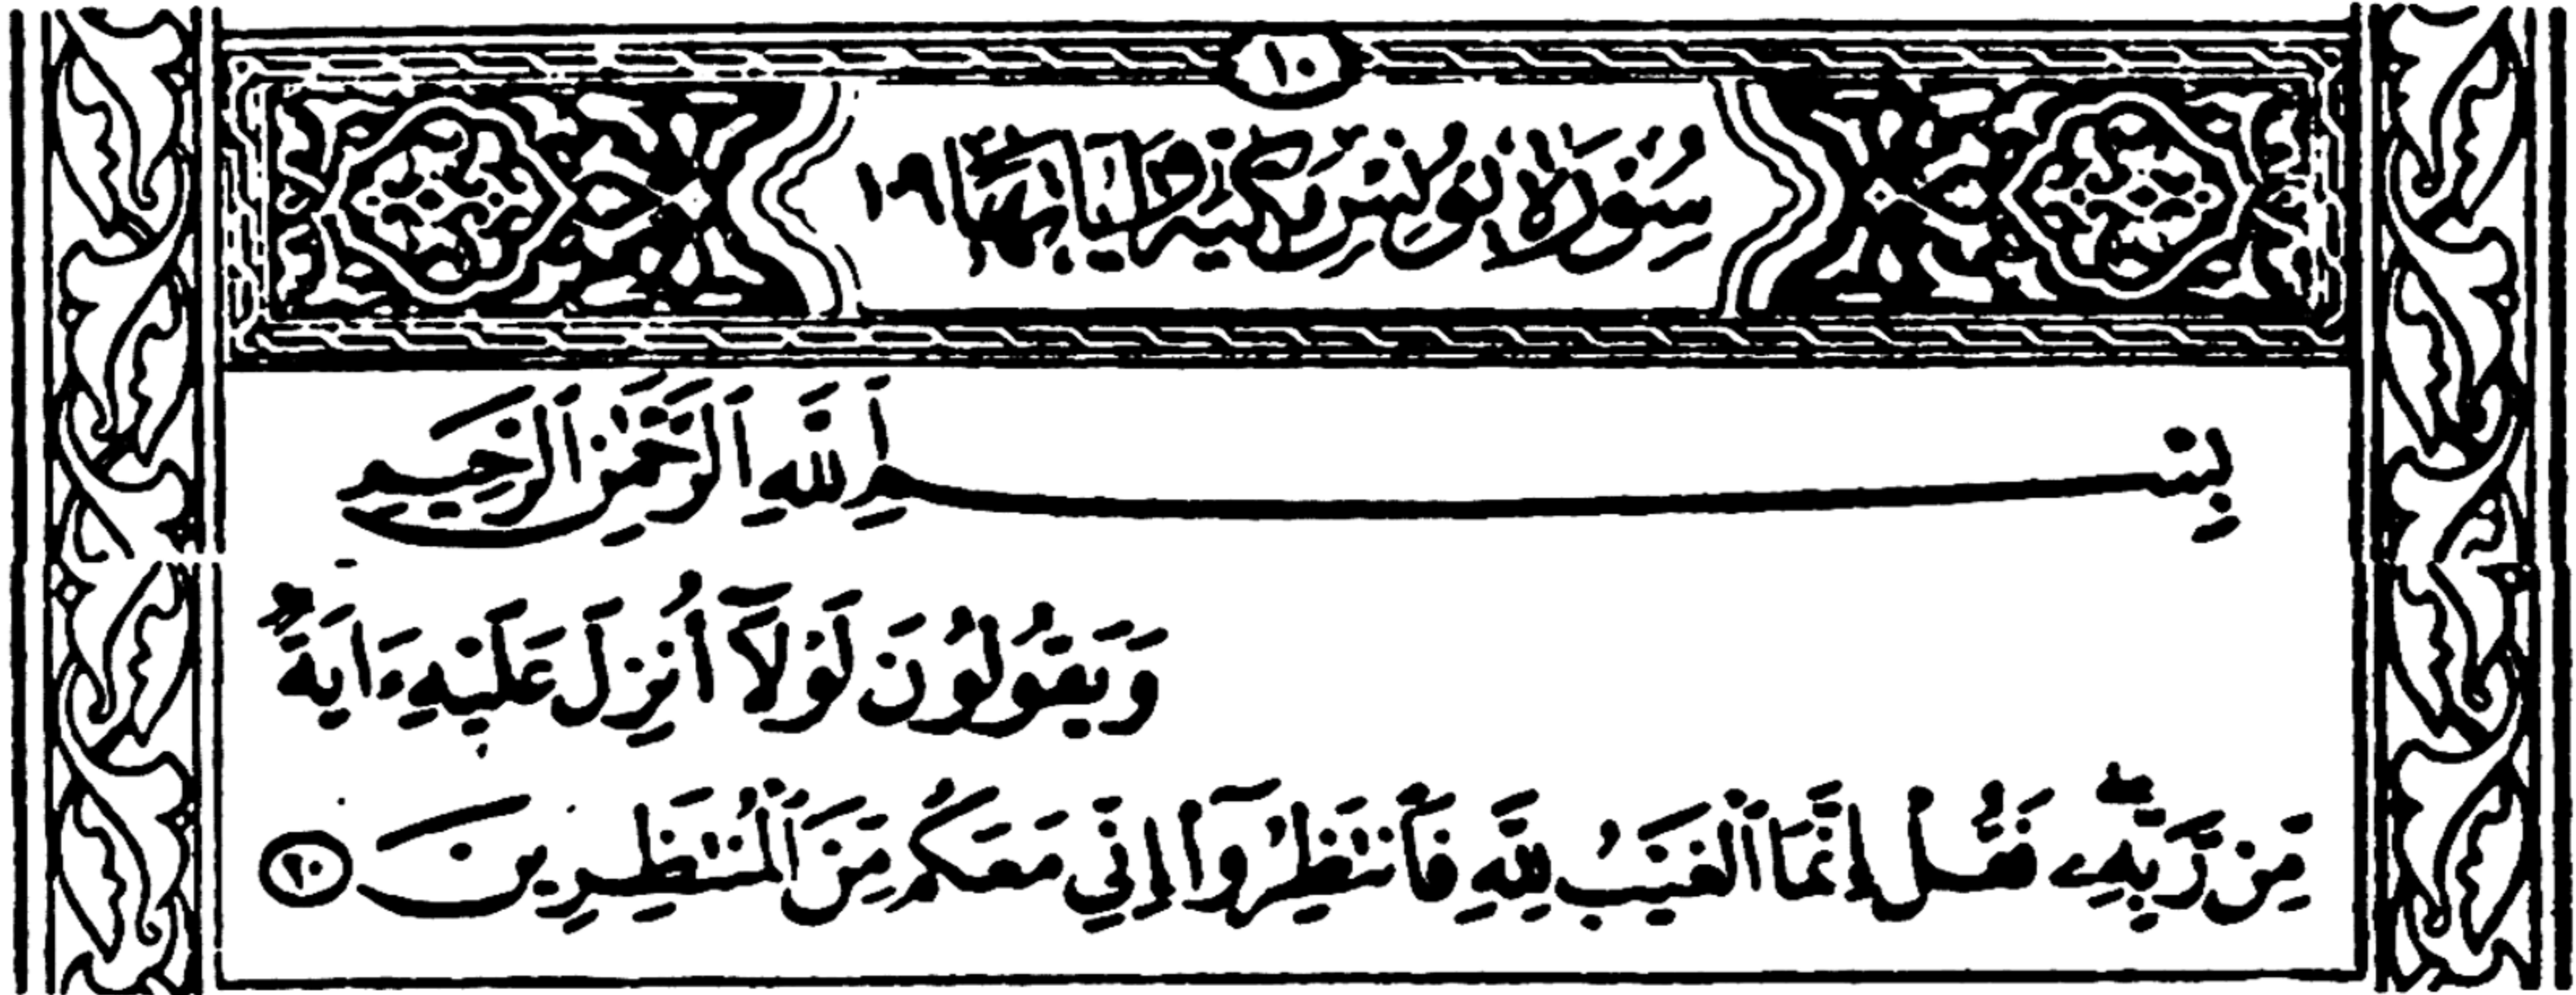 ١٠
سُورَةُ يُونُسَ مَكِّيَّة وَآيَاتُهَا ١٠٩
بِسْمِ ٱللَّهِ ٱلرَّحْمَٰنِ ٱلرَّحِيمِ
وَيَقُولُونَ لَوْلَآ أُنزِلَ عَلَيْهِ ءَايَةٌ
مِّن رَّبِّهِۦ ۖ فَقُلْ إِنَّمَا ٱلْغَيْبُ لِلَّهِ فَٱنتَظِرُوٓا۟ إِنِّي مَعَكُم مِّنَ ٱلْمُنتَظِرِينَ ٢٠